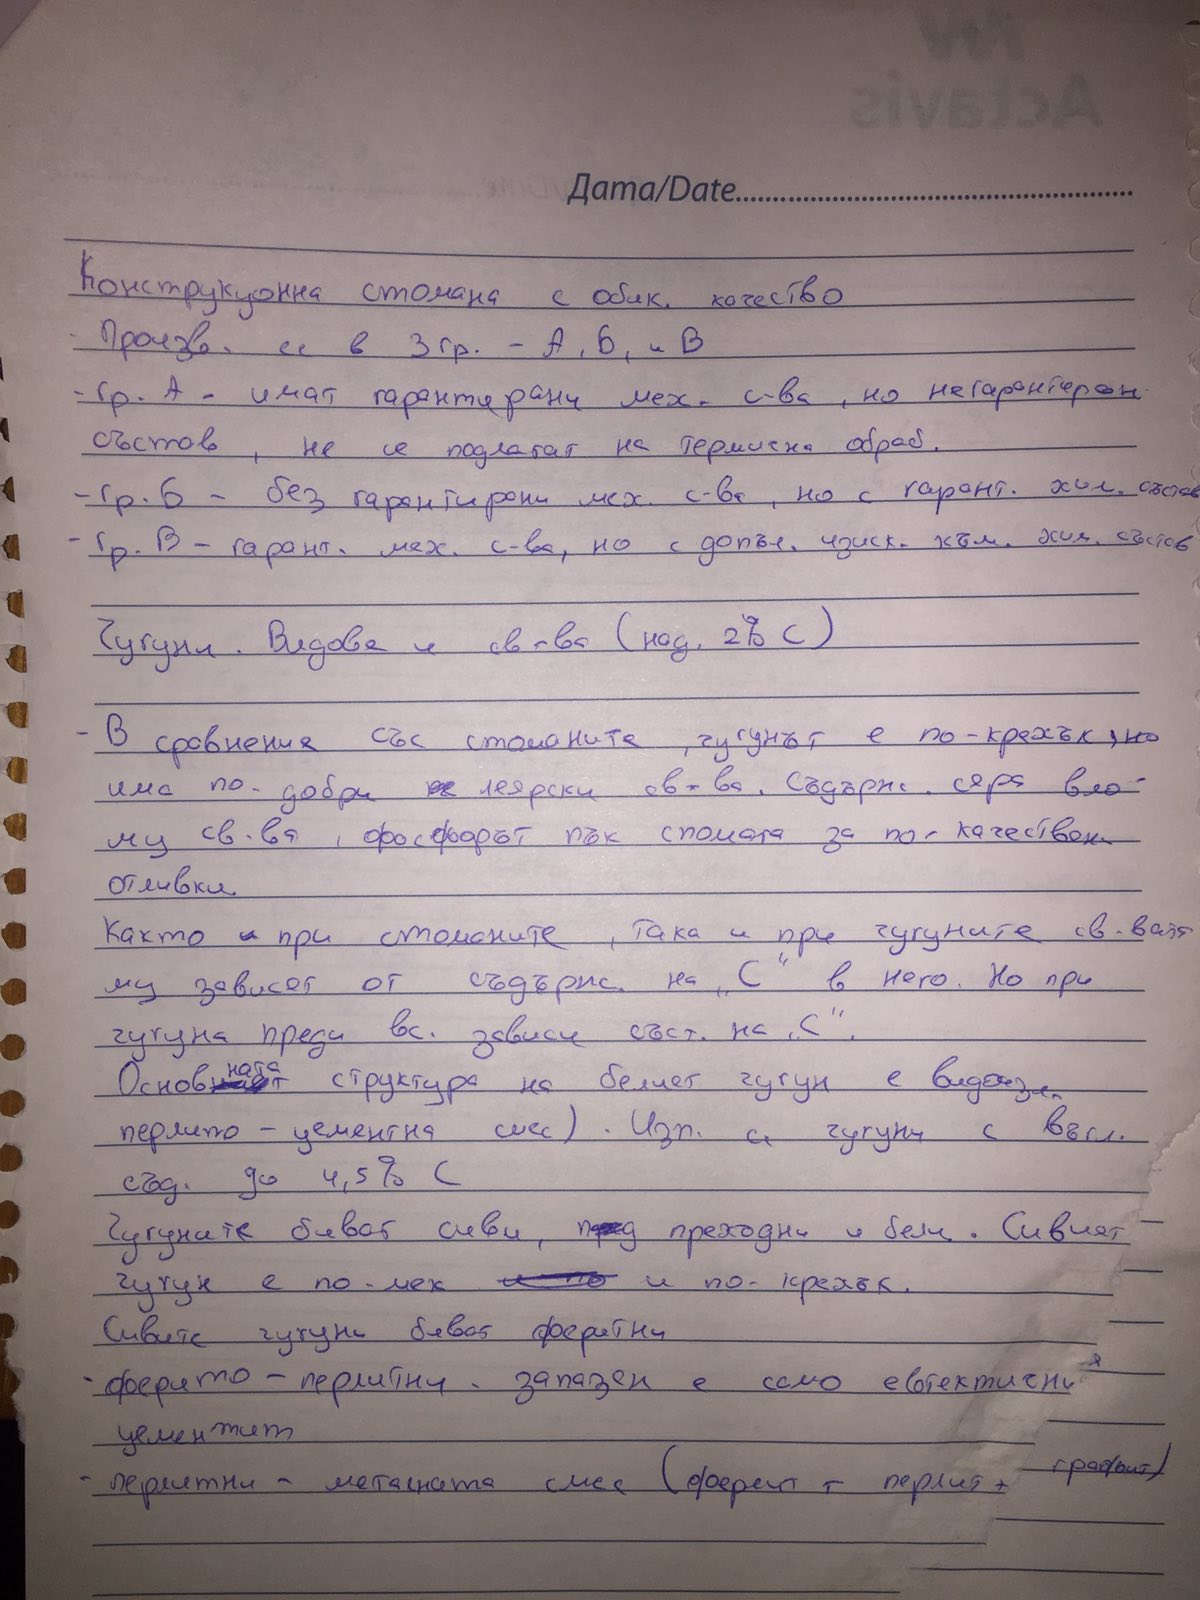 Дата/Date
Конструкционна стомана с обик. качество
- Произв. се в 3 гр. - А, Б, и В
- гр. А - имат гарантирани мех. с-ва, но негарантиран
състав, не се подлагат на термична обраб.
- гр. Б - без гарантирани мех. с-ва, но с гарант. хим. състав
- гр. В - гарант. мех. с-ва, но с допъл. изиск. към. хим. състав
Чугуни. Видове и св-ва (над. 2% С)
- В сравнение със стоманите, чугунът е по-крехък, но
има по-добри леярски св-ва. Съдърж. сяра вло-
му св-ва, фосфорът пък спомага за по-качествени
отливки.
Както и при стоманите, така и при чугуните св-вата
му зависят от съдърж. на „С“ в него. Но при
чугуна преди вс. зависи съст. на „С“.
Основната структура на белият чугун е видоизм.
перлито - цементна смес). Изп. се чугуни с въгл.
съд. до 4,5% С
Чугуните биват сиви, преходни и бели. Сивият
чугун е по-мек и по-крехък.
Сивите чугуни биват феритни
- ферито - перлитни - запазен е само евтектичния
цементит
- перлитни - металната смес (ферит + перлит + графит)
Actavis